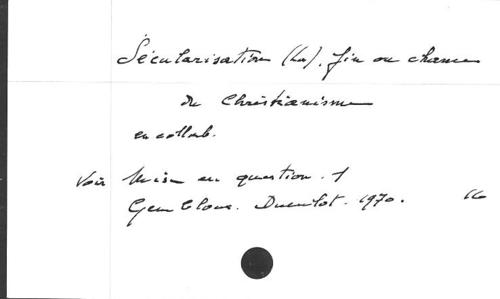 Sécularisation (La), fin ou chance
du Christianisme
en collab.
Voir Mise en question. 1
Gembloux. Duculot. 1970.